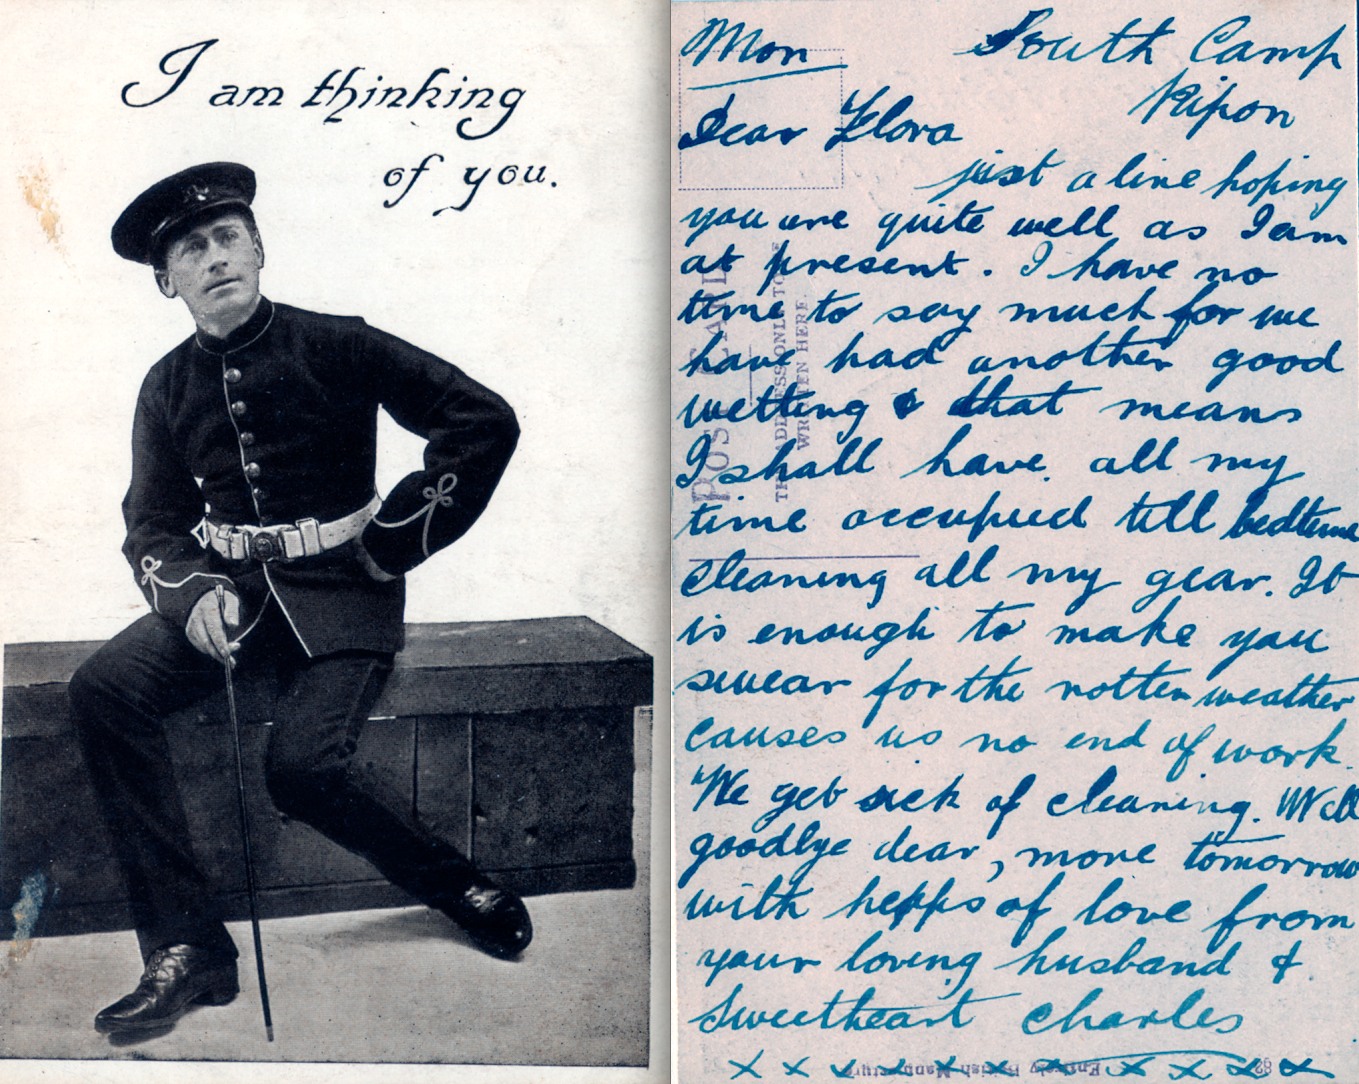 I am thinking
of you.
Mon South Camp
Ripon
Dear Flora
just a line hoping
you are quite well as I am
at present. I have no
time to say much for we
have had another good
wetting & that means
I shall have all my
time occupied till bedtime
cleaning all my gear. It
is enough to make you
swear for the rotten weather
causes us no end of work.
We get sick of cleaning. Well
goodbye dear, more tomorrow
with hepps of love from
your loving husband &
Sweetheart Charles
x x x x x x x x x x x
POST CARD
THE ADDRESS ONLY TO BE
WRITTEN HERE.
Entirely British Manufacture